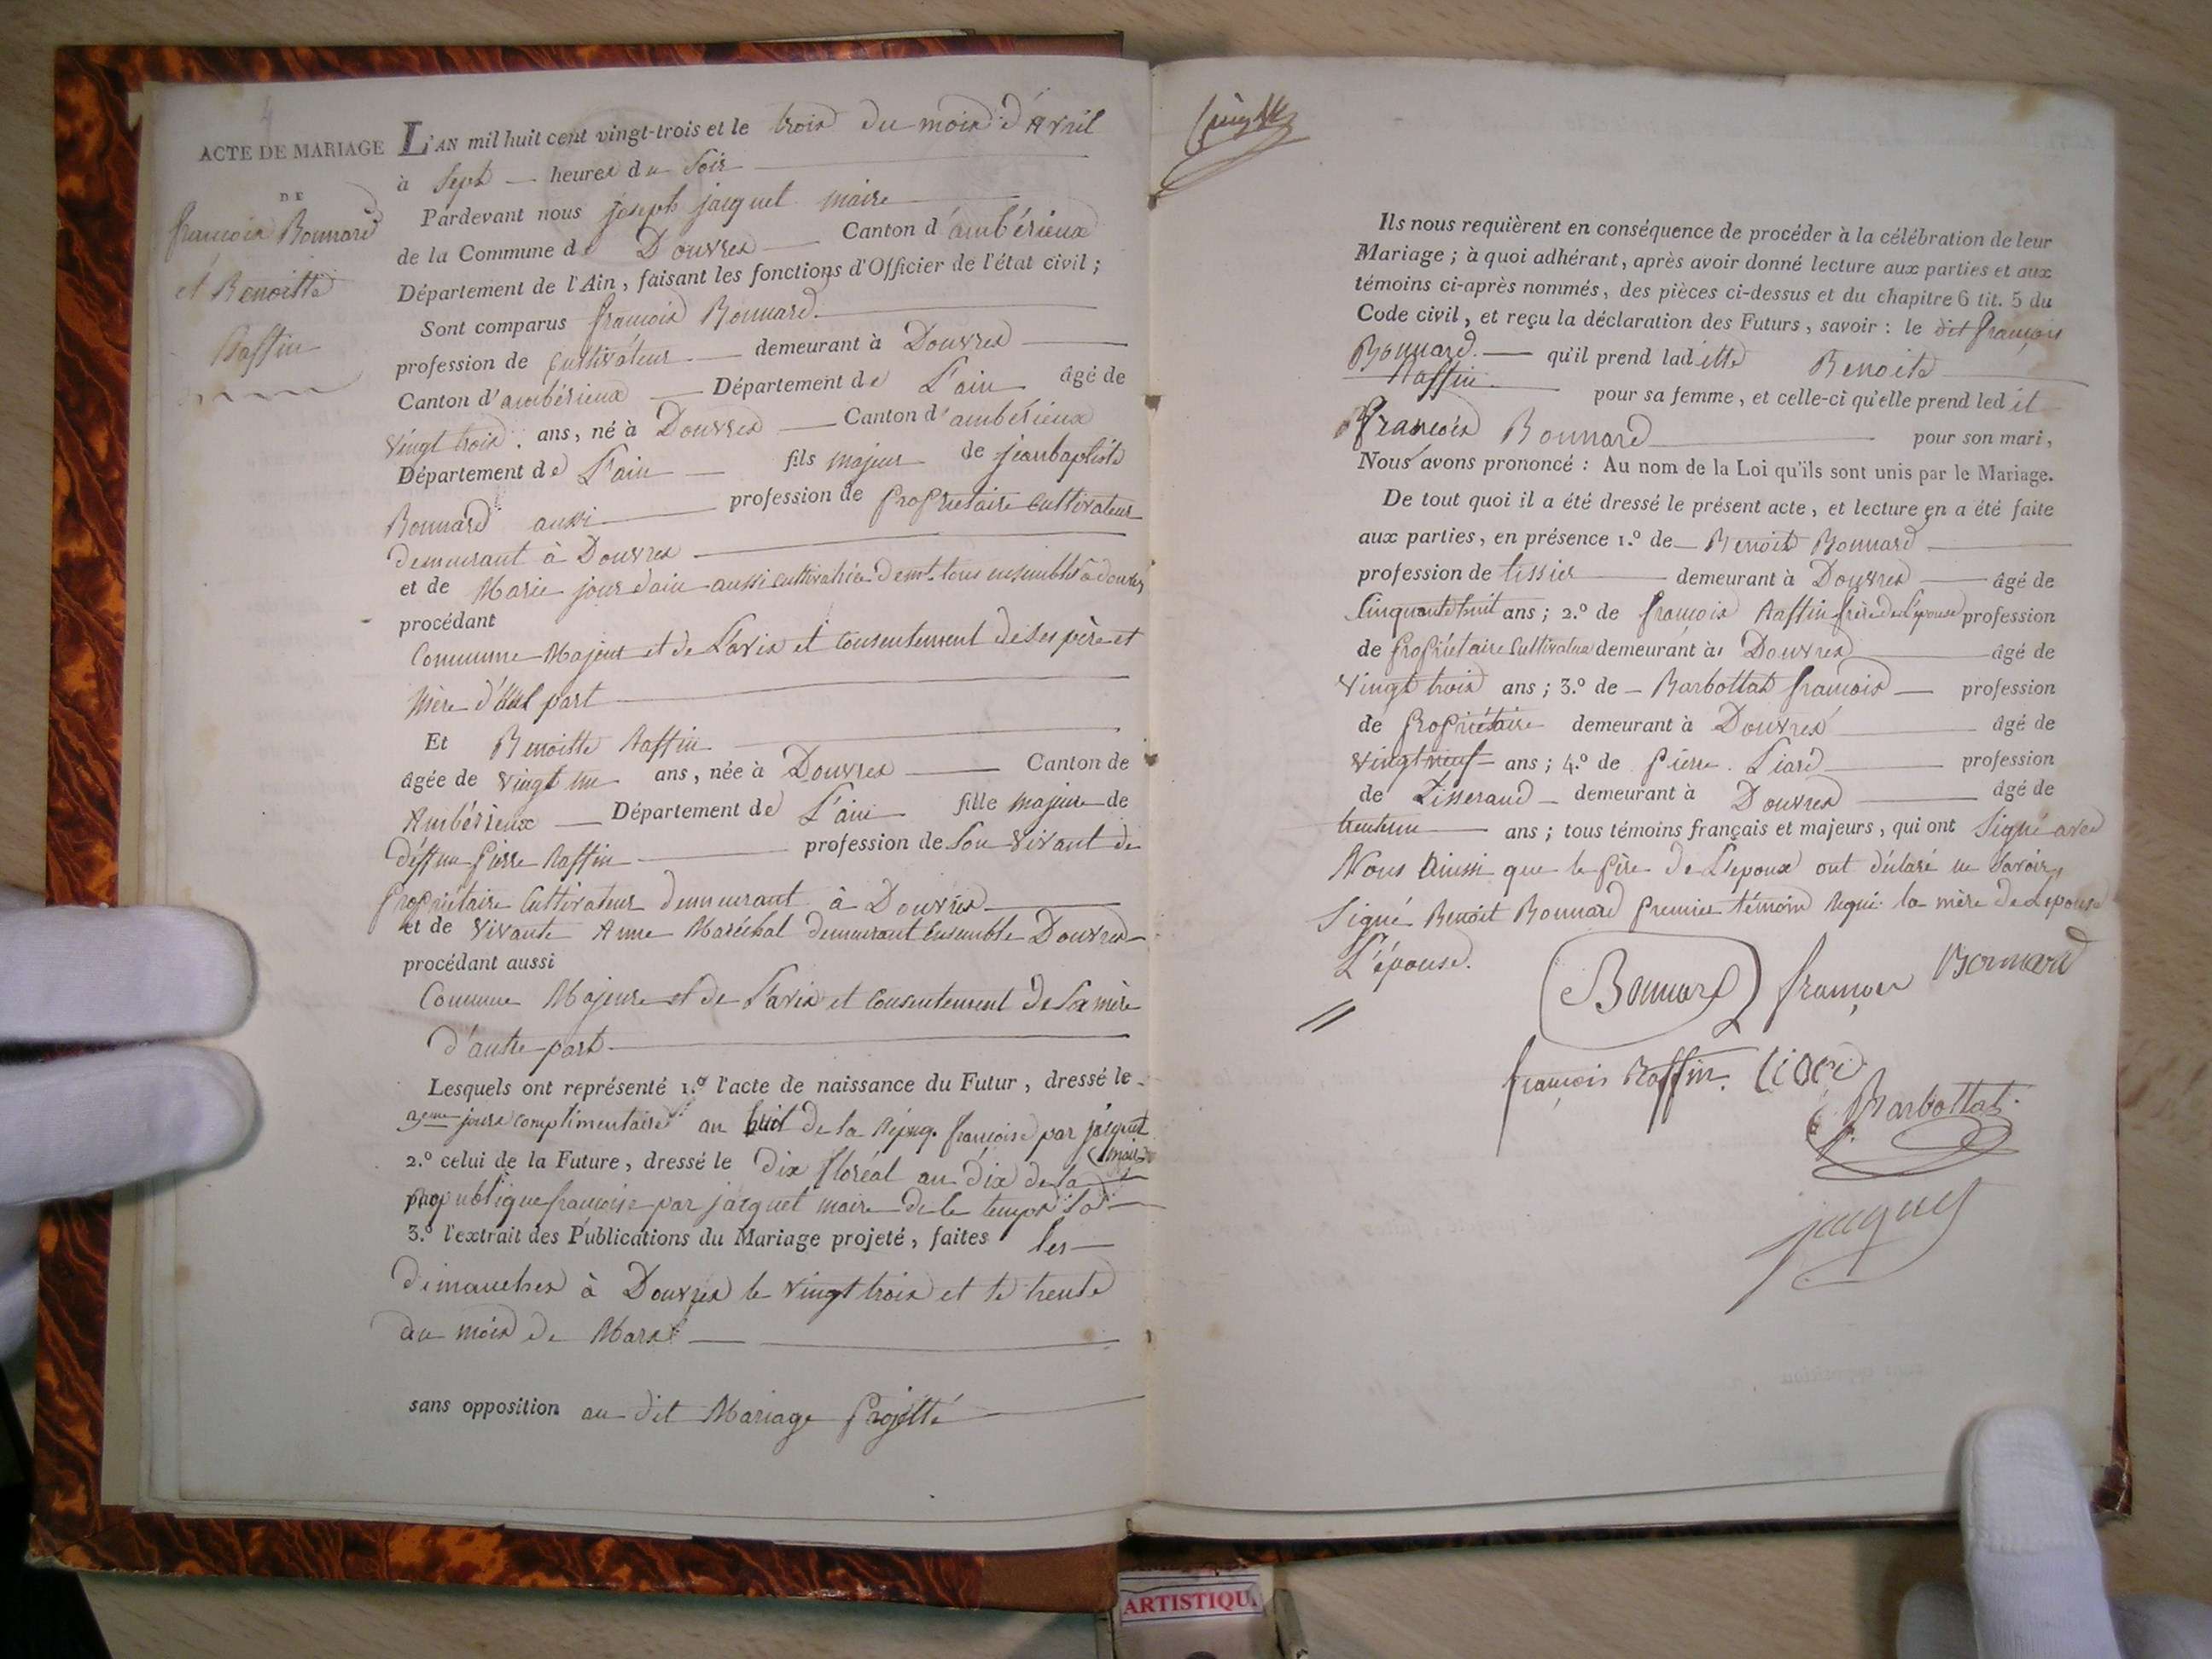 ACTE DE MARIAGE
DE
françois Bonnard
et Benoitte
Raffin
L'AN mil huit cent vingt-trois et le trois du mois d'Avril
à sept heures du soir
Pardevant nous joseph jacquet maire
de la Commune de Douvres Canton d'ambérieux
Département de l'Ain, faisant les fonctions d'Officier de l'état civil ;
Sont comparus francois Bonnard
profession de cultivateur demeurant à Douvres
Canton d'ambérieux Département de L'ain âgé de
vingt trois ans, né à Douvres Canton d'ambérieux
Département de L'ain fils majeur de jeanbaptiste
Bonnard aussi profession de proprietaire cultivateur
demeurant à Douvres
et de Marie jourdain aussi cultivatrice demt. tous ensembles à douvres
procédant
Comme Majeur et de L'avis et consentement de ses père et
mère d'une part
Et Benoitte Raffin
âgée de vingt un ans, née à Douvres Canton de
Ambérieux Département de L'ain fille majeure de
déffun pierre Raffin profession de son vivant de
propriétaire cultivateur demeurant à Douvres
et de vivante Anne Maréchal demeurant ensemble Douvres
procédant aussi
Comme Majeure et de L'avis et consentement de sa mère
d'autre part
Lesquels ont représenté 1.º l'acte de naissance du Futur, dressé le
3eme jours complimentaires an huit de la répug. francoise par jacquet
maire
2.º celui de la Future, dressé le dix floréal an dix de la
republique francoise par jacquet maire de le temps là
3.º l'extrait des Publications du Mariage projeté, faites les
dimanches à Douvres le vingt trois et le trente
du mois de Mars
sans opposition au dit Mariage projetté
Ils nous requièrent en conséquence de procéder à la célébration de leur
Mariage ; à quoi adhérant, après avoir donné lecture aux parties et aux
témoins ci-après nommés, des pièces ci-dessus et du chapitre 6 tit. 5 du
Code civil, et reçu la déclaration des Futurs, savoir : le dit françois
Bonnard qu'il prend laditte Benoite
Raffin pour sa femme, et celle-ci qu'elle prend ledit
francois Bonnard pour son mari,
Nous avons prononcé : Au nom de la Loi qu'ils sont unis par le Mariage.
De tout quoi il a été dressé le présent acte, et lecture en a été faite
aux parties, en présence 1.º de Benoit Bonnard
profession de tissier demeurant à Douvres âgé de
cinquante huit ans ; 2.º de françois Raffin frère de L'épouse profession
de propriétaire cultivateur demeurant à Douvres âgé de
vingt trois ans ; 3.º de Barbottat francois profession
de propriétaire demeurant à Douvres âgé de
vingt neuf ans ; 4.º de pierre Liard profession
de Tisserand demeurant à Douvres âgé de
trenteun ans ; tous témoins français et majeurs, qui ont signé avec
Nous ainsi que le père de L'epoux ont déclaré ne savoir
signé Benoit Bonnard premier témoin requi la mère de Lepouse
L'épouse.
Bonnard françois Bonnard
françois Raffin. liard
Barbottat
jacquet
ARTISTIQU